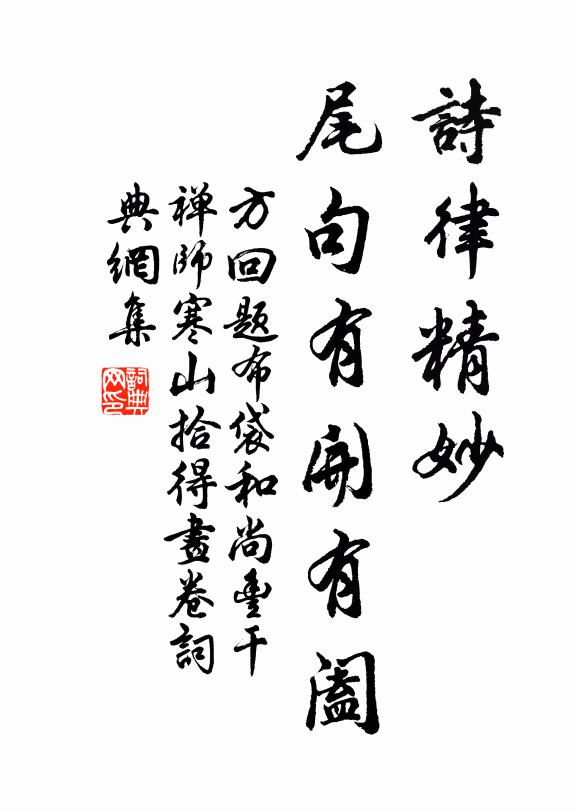 詩律精妙
尾句有開有闔
方回題布袋和尚豐干
禅師寒山拾得畫卷詞
典網集
詞典網印